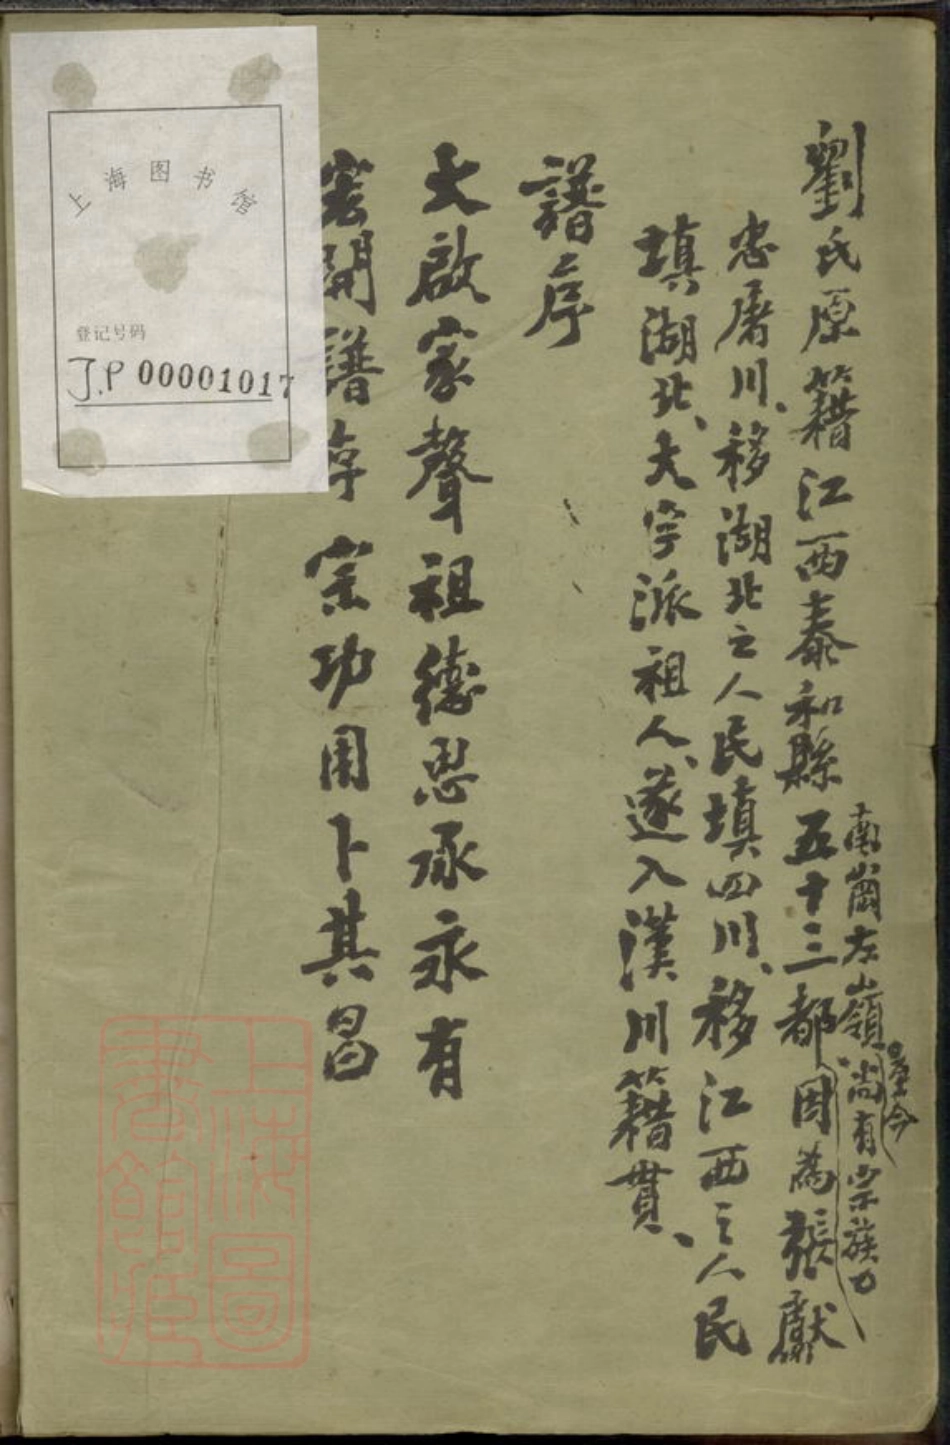 劉氏原籍江西泰和縣五十三都因為張獻
南崗左嶺尚有宗族
至今
忠屠川、移湖北之人民填四川、移江西之人民
填湖北、大字派祖人、遂入漢川籍貫、
譜序
大啟家聲祖德思承永有
開譜序宗功用卜其昌
上海图书馆
登记号码
J.P 00001017
上海圖
書館藏